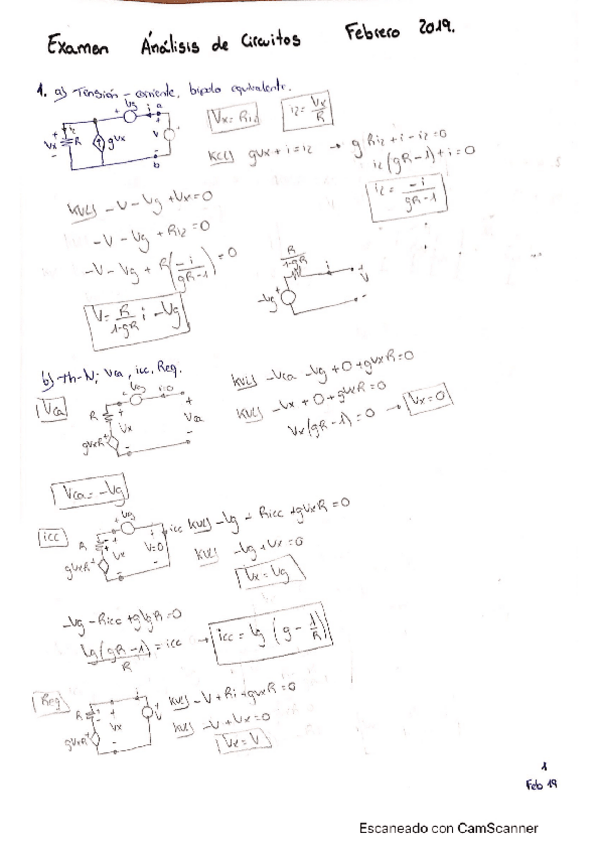 Examen Análisis de Circuitos Febrero 2019.
1. a) Tensión - corriente, bipolo equivalente.
Vg i a
Vx = Ri2 i2 = Vx/R
+ i2 Vx R gVx V
- b
KCL) gVx + i = i2 → gRi2 + i - i2 = 0
i2(gR-1) + i = 0
i2 = -i/(gR-1)
KVL) -V - Vg + Vx = 0
-V - Vg + Ri2 = 0
-V - Vg + R(-i/(gR-1)) = 0
V = R/(1-gR) i - Vg
R/(1-gR) i
-Vg + V
b) Th-N; Vca, icc, Req.
Vca
Vg i=0
R + Vx - gVxR
+ Vca -
KVL) -Vca - Vg + 0 + gVxR = 0
KVL) -Vx + 0 + gVxR = 0
Vx(gR-1) = 0 → Vx = 0
Vca = -Vg
icc
Vg icc
R Vx V=0
gVxR
KVL) -Vg - Ricc + gVxR = 0
KVL) -Vg + Vx = 0
Vx = Vg
-Vg - Ricc + gVgR = 0
Vg(gR-1)/R = icc → icc = Vg (g - 1/R)
Req
i
R Vx V
gVxR
KVL) -V + Ri + gVxR = 0
KVL) -V + Vx = 0
Vx = V
1
Feb 19
Escaneado con CamScanner